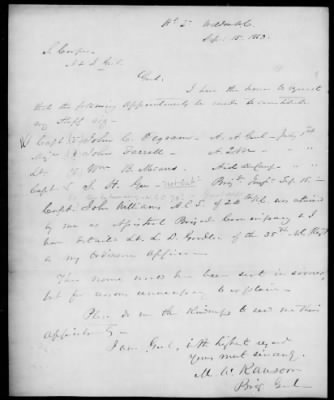 Hd Qrs Weldon N.C.
Sep. 15. 1863.
S. Cooper
A & I Genl
Genl.
I have the honor to request
that the following appointments be made to constitute
my Staff viz—
Capt John C. Pegram — A. A. Genl — July 1st
John Farrell — " "
Lt. Wm B. Meares Aid de Camp — " "
Capt Brig. Sep 15 —
Capt. John Williams A.C.S. of 24th was retained
by me as Assistant Brigade Commissary & I
have detailed Lt. L. D. of the 35th N.C. Regt
as my Ordnance Officer —
These names would have been sent in sooner,
but for reasons unnecessary to explain —
Please do me the kindness to send me their
appointments —
I am Genl, with highest regard
Yours most sincerely,
M W Ransom
Brig Genl